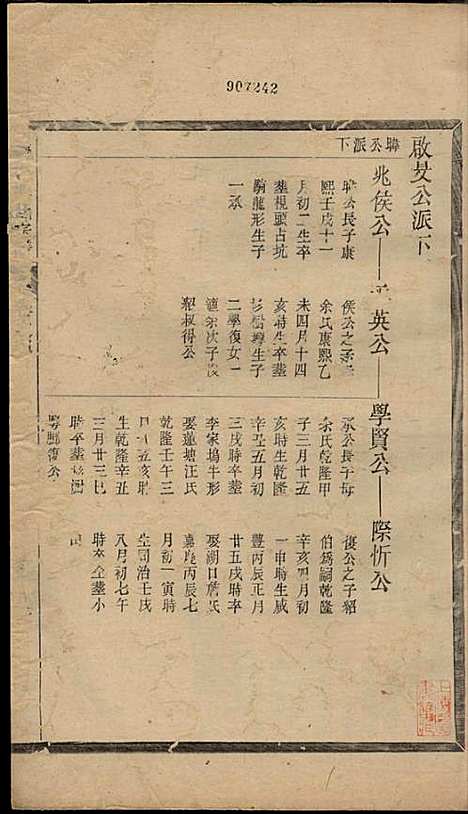 907242
啟旻公派下
聯公派下
兆侯公
英公
學貿公
際忻公
聯公長子康
熙壬戌十一
月初二生卒
塟視頭占坑
騎龍形生子
一承
侯公之子
余氏康熙乙
未四月十四
亥時生卒塟
杉樹墩生子
二學復女一
續余次子俊
紹叔得公
承公長子母
余氏乾隆甲
子三月廿五
亥時生乾隆
辛丑五月初
三戌時卒塟
李家塢牛形
娶蓮塘汪氏
乾隆壬午三
月十五亥時
生乾隆辛丑
三月廿三巳
時卒塟
復公之子紹
伯爲嗣乾隆
辛亥四月初
一申時生咸
豐丙辰正月
廿五戌時卒
娶湖口詹氏
嘉慶丙辰七
月初一寅時
生同治壬戌
八月初七午
時卒仝塟小